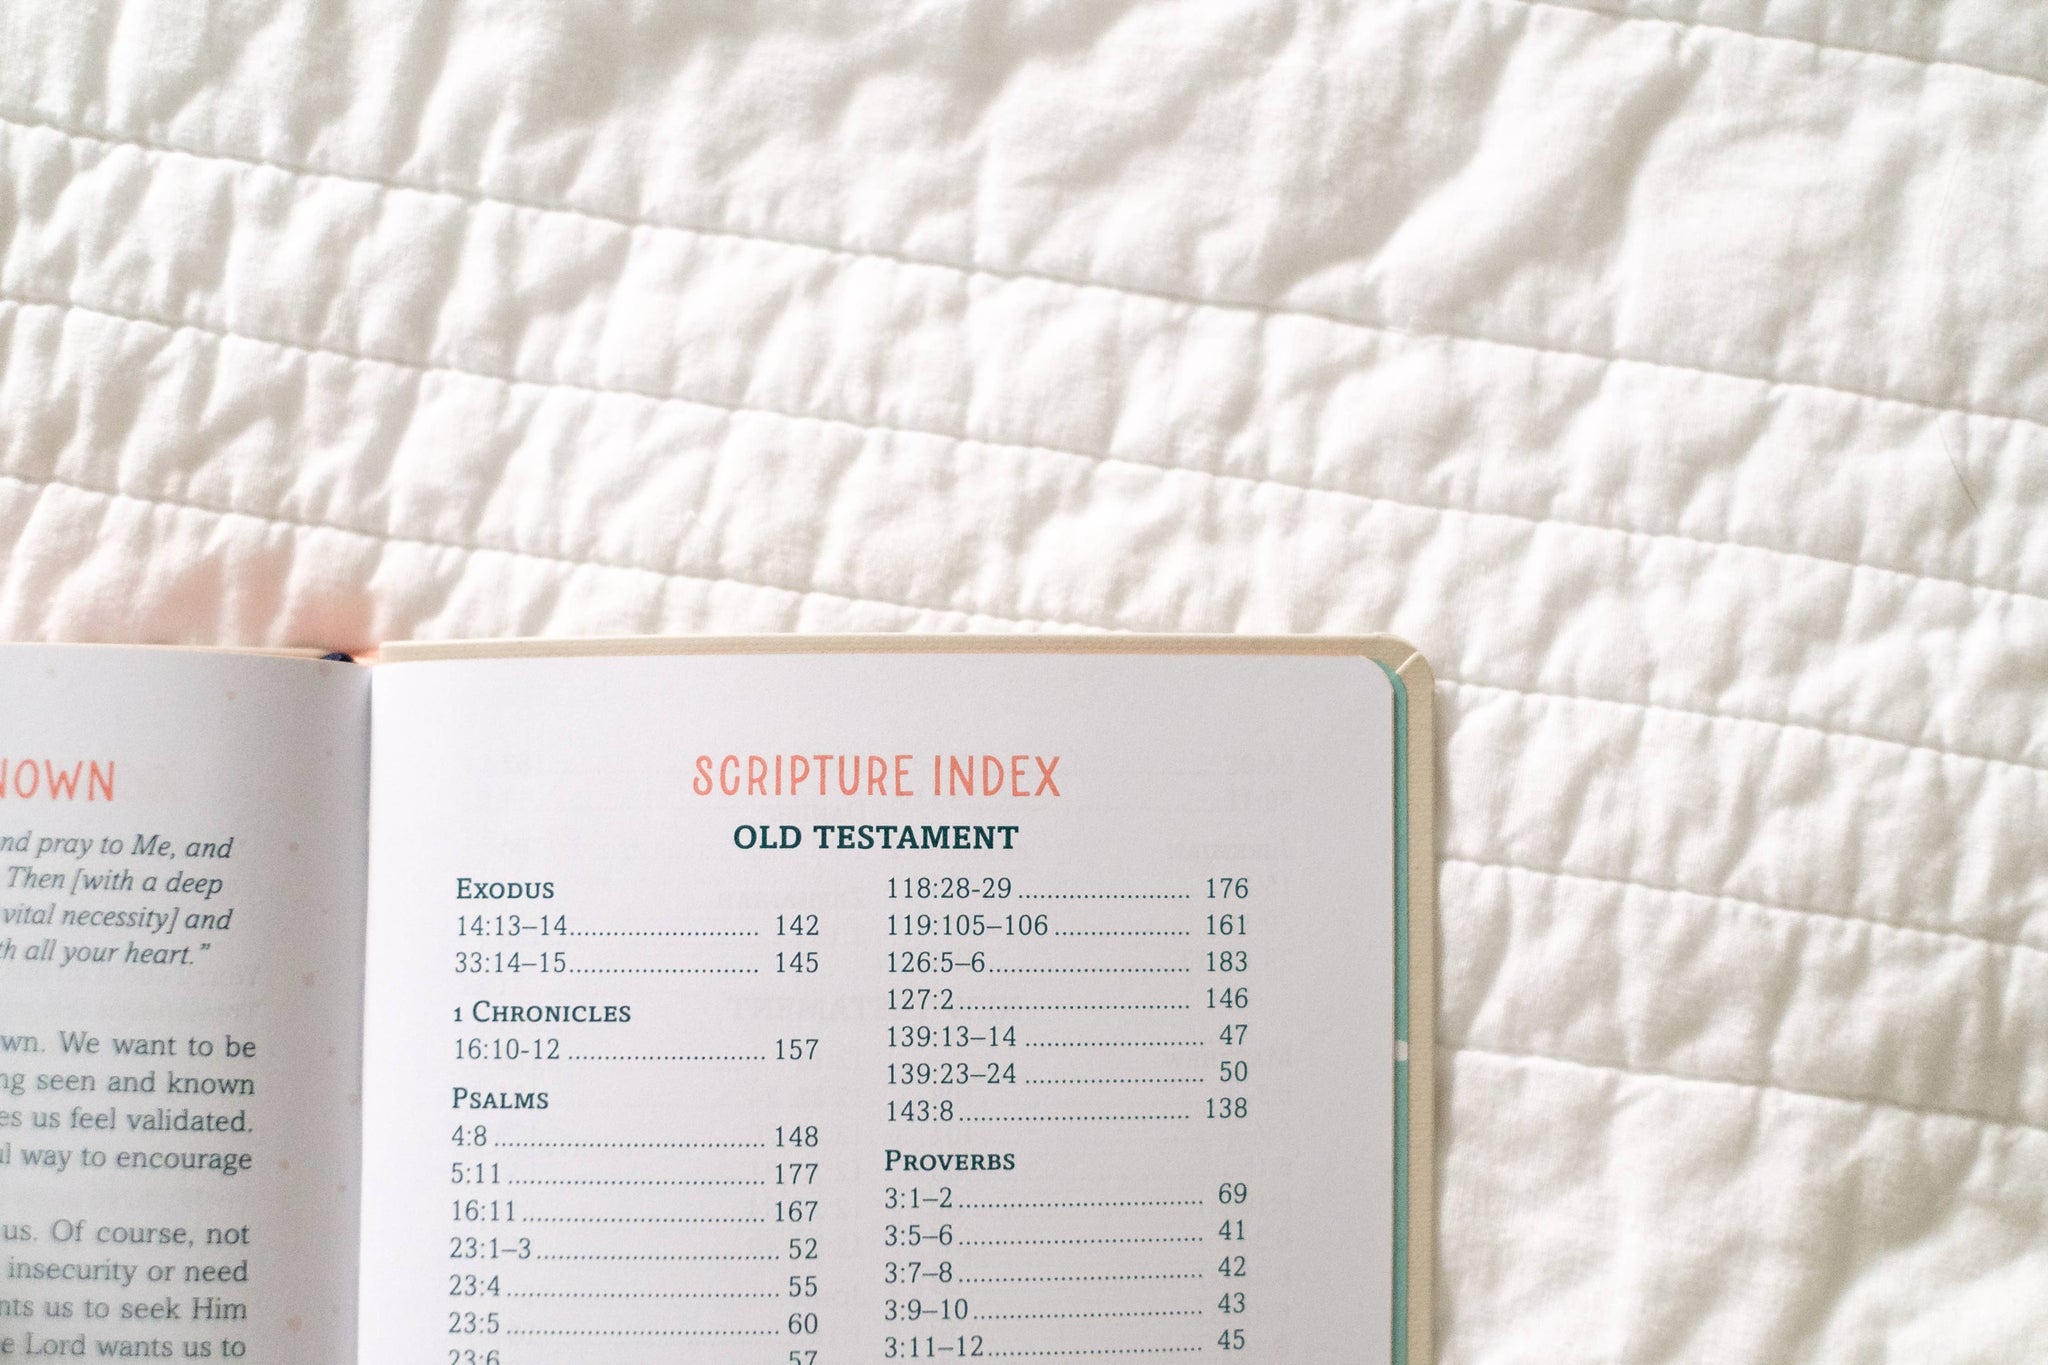 NOWN
nd pray to Me, and
Then [with a deep
vital necessity] and
th all your heart.”
wn. We want to be
ng seen and known
es us feel validated.
l way to encourage
us. Of course, not
insecurity or need
nts us to seek Him
e Lord wants us to
SCRIPTURE INDEX
OLD TESTAMENT
EXODUS
14:13–14 142
33:14–15 145
1 CHRONICLES
16:10-12 157
PSALMS
4:8 148
5:11 177
16:11 167
23:1–3 52
23:4 55
23:5 60
23:6 57
118:28-29 176
119:105–106 161
126:5–6 183
127:2 146
139:13–14 47
139:23–24 50
143:8 138
PROVERBS
3:1–2 69
3:5–6 41
3:7–8 42
3:9–10 43
3:11–12 45